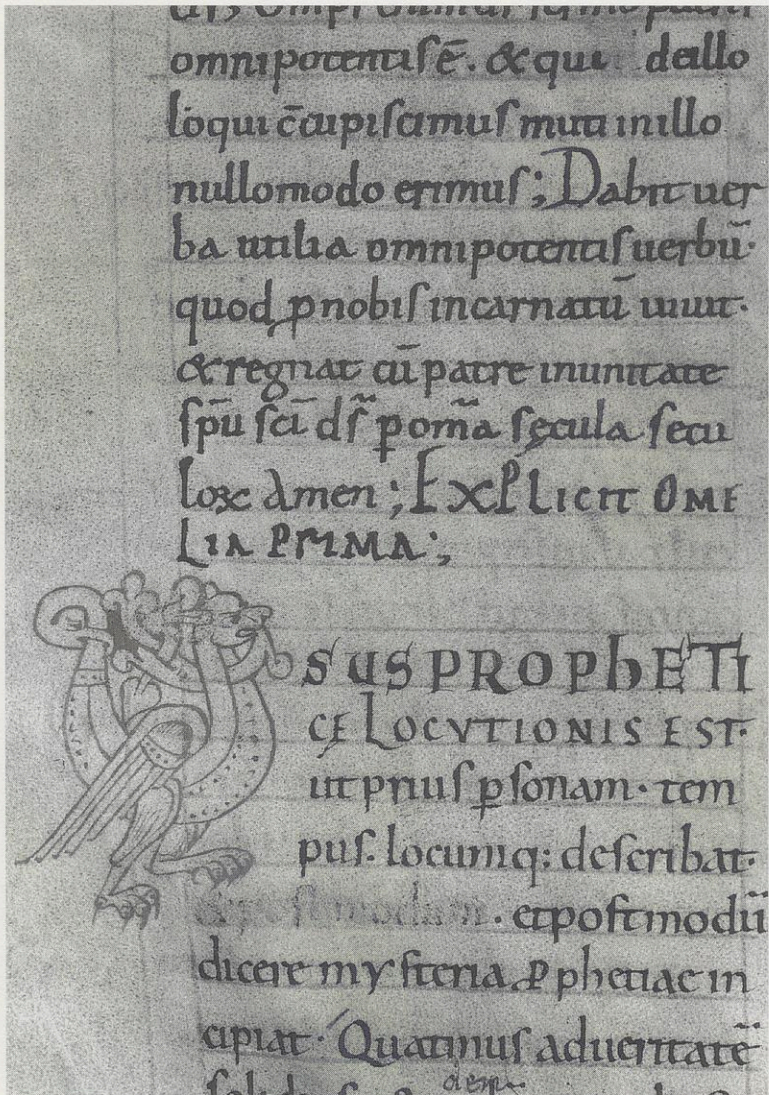 omnipotentis ē. & qui de illo
loqui c̄cupiscimus muti in illo
nullomodo erimus; Dabit uer
ba utilia omnipotentis uerbū·
quod ꝓ nobis incarnatū uiuit·
& regnat cū patre in unitate
sp̄u sc̄i ds̄ ꝑ om̄a sęcula secu
loꝝ Amen; EXPLICIT OME
LIA PRIMA·,
USUS PROPhETI
CĘ LOCVTIONIS EST·
ut prius ꝑsonam· tem
pus· locumq: describat·
& postmodum· et postmodū
dicere mysteria ꝓphetiae in
cipiat· Quatinus ad ueritatē